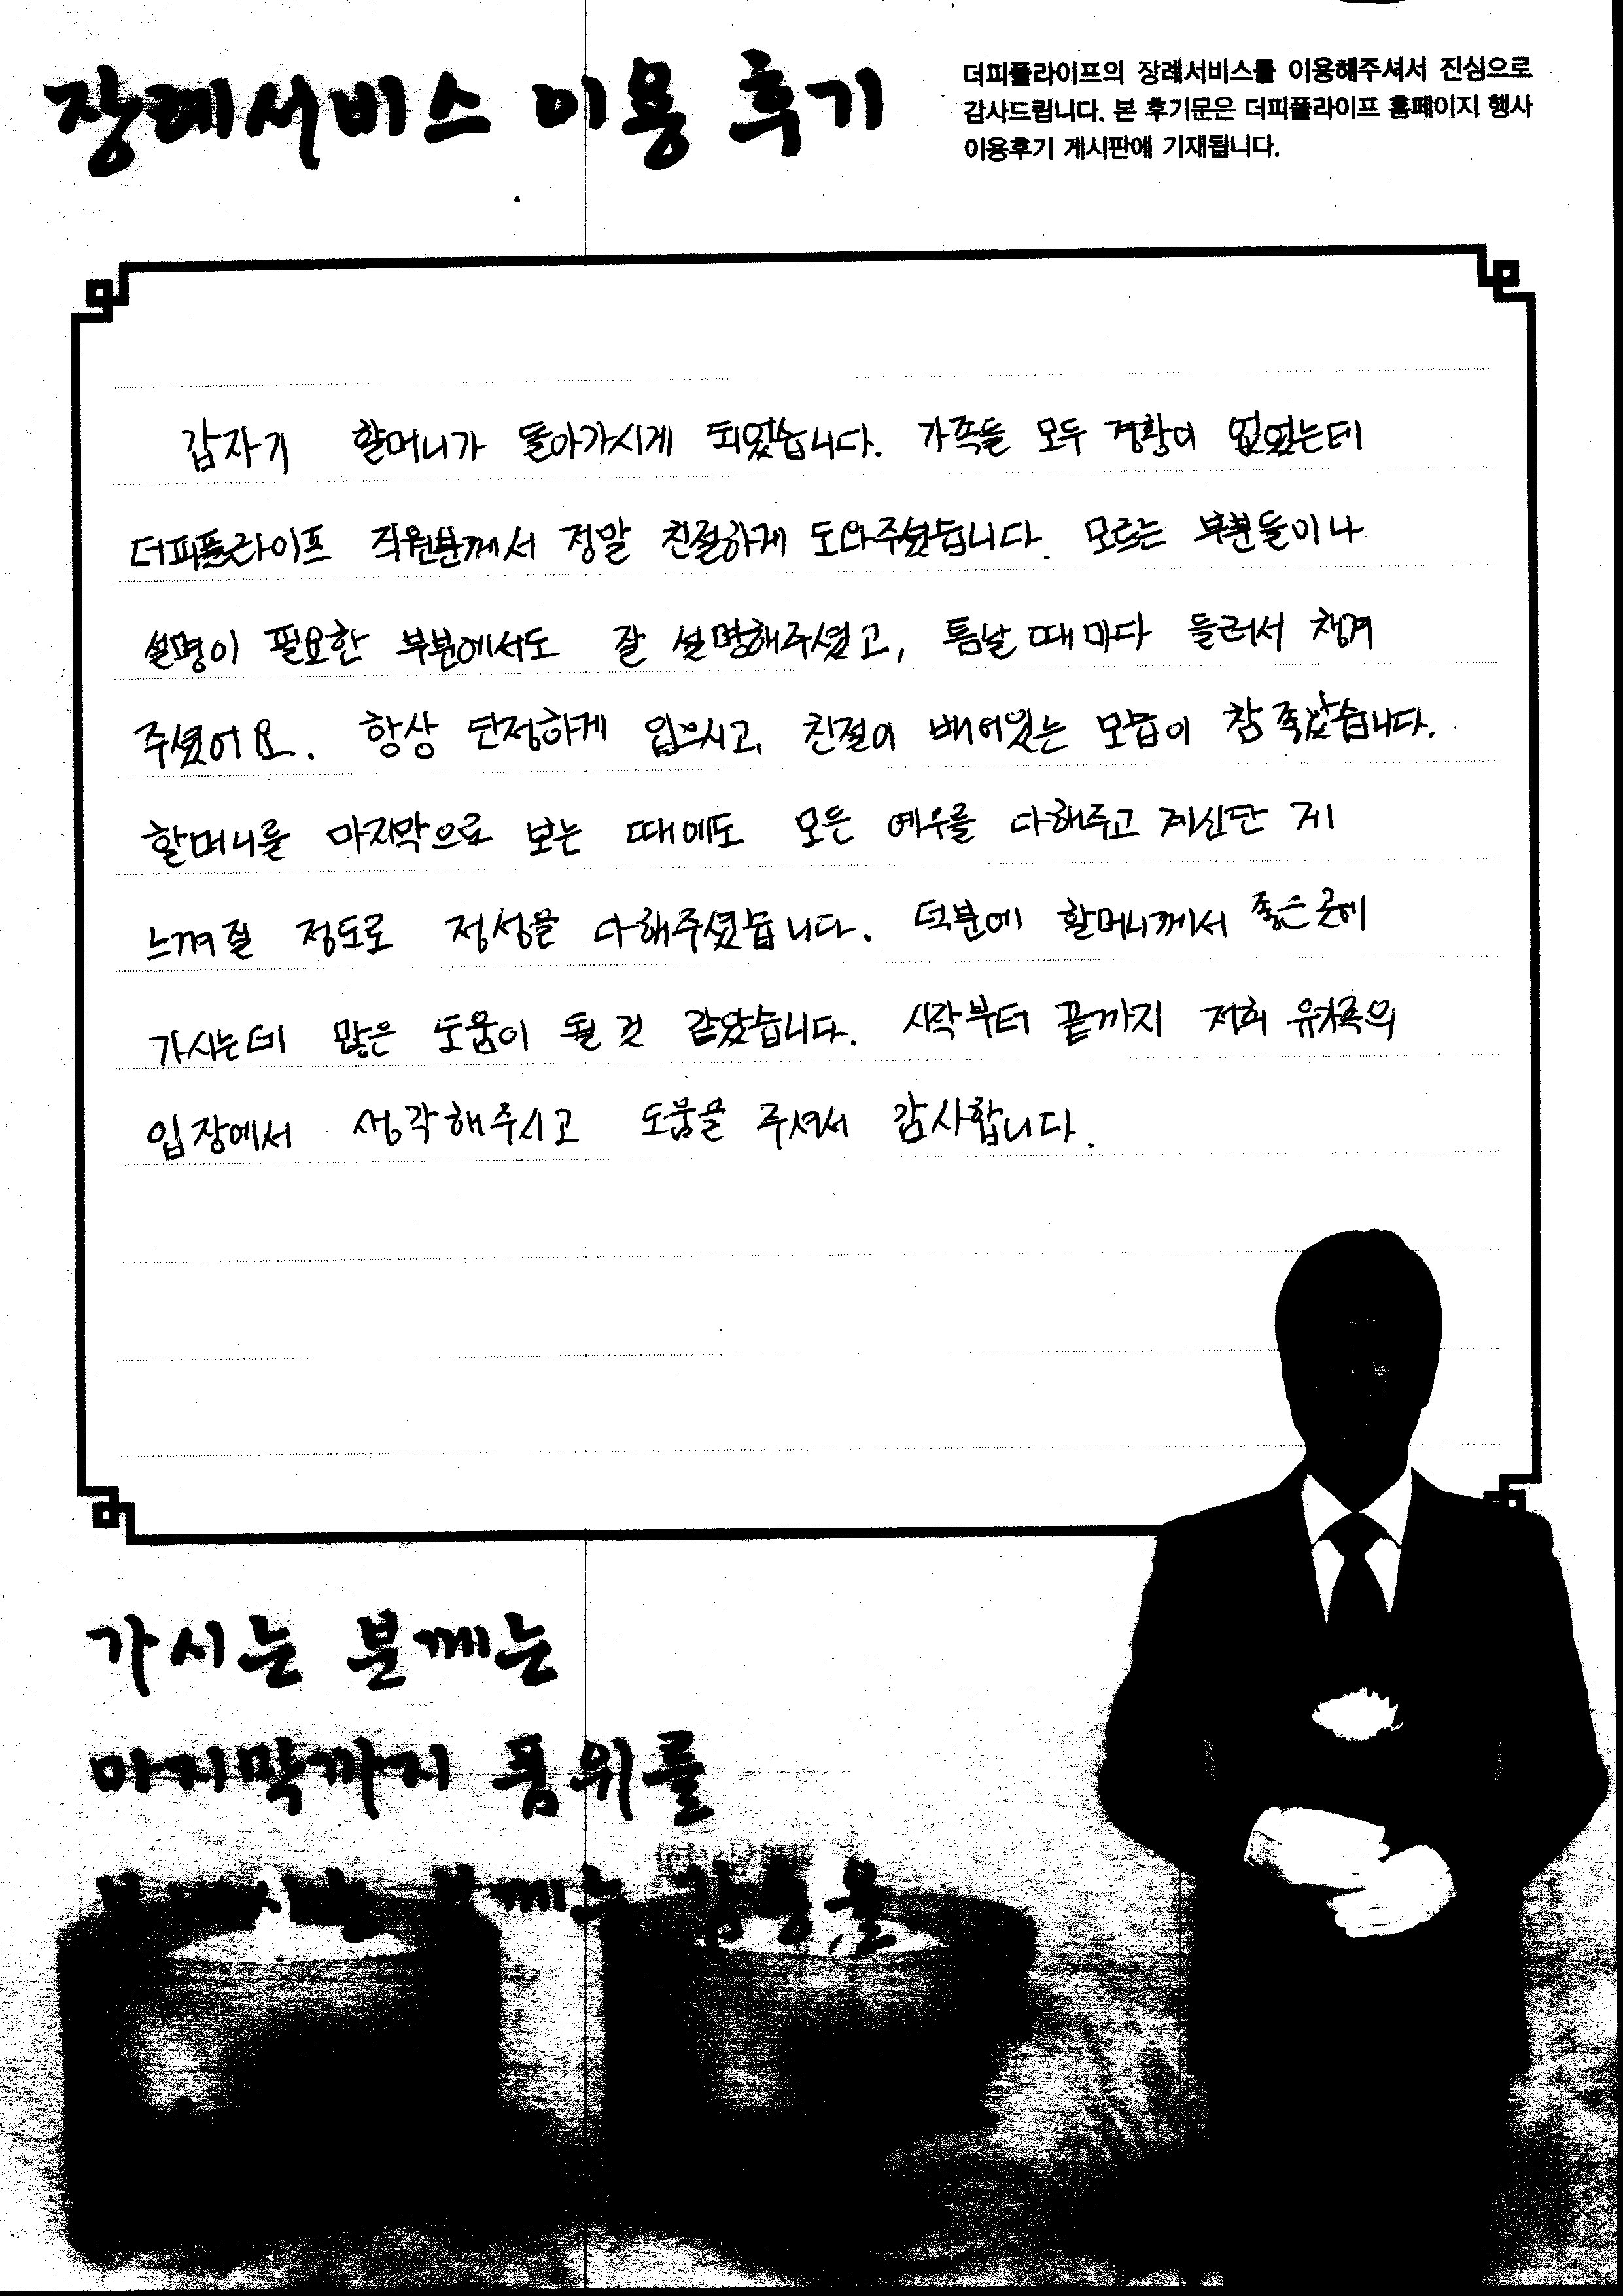 장례서비스 이용 후기
더피플라이프의 장례서비스를 이용해주셔서 진심으로
감사드립니다. 본 후기문은 더피플라이프 홈페이지 행사
이용후기 게시판에 기재됩니다.
갑자기 할머니가 돌아가시게 되었습니다. 가족들 모두 경황이 없었는데
더피플라이프 직원분께서 정말 친절하게 도와주셨습니다. 모르는 부분들이나
설명이 필요한 부분에서도 잘 설명해주셨고, 틈날 때마다 들러서 챙겨
주셨어요. 항상 단정하게 입으시고, 친절이 배어있는 모습이 참 좋았습니다.
할머니를 마지막으로 보는 때에도 모든 예우를 다해주고 계신단 게
느껴질 정도로 정성을 다해주셨습니다. 덕분에 할머니께서 좋은 곳에
가시는데 많은 도움이 될 것 같았습니다. 시작부터 끝까지 저희 유가족의
입장에서 생각해주시고 도움을 주셔서 감사합니다.
가시는 분께는
마지막까지 품위를
보내시는 분께는 감동을